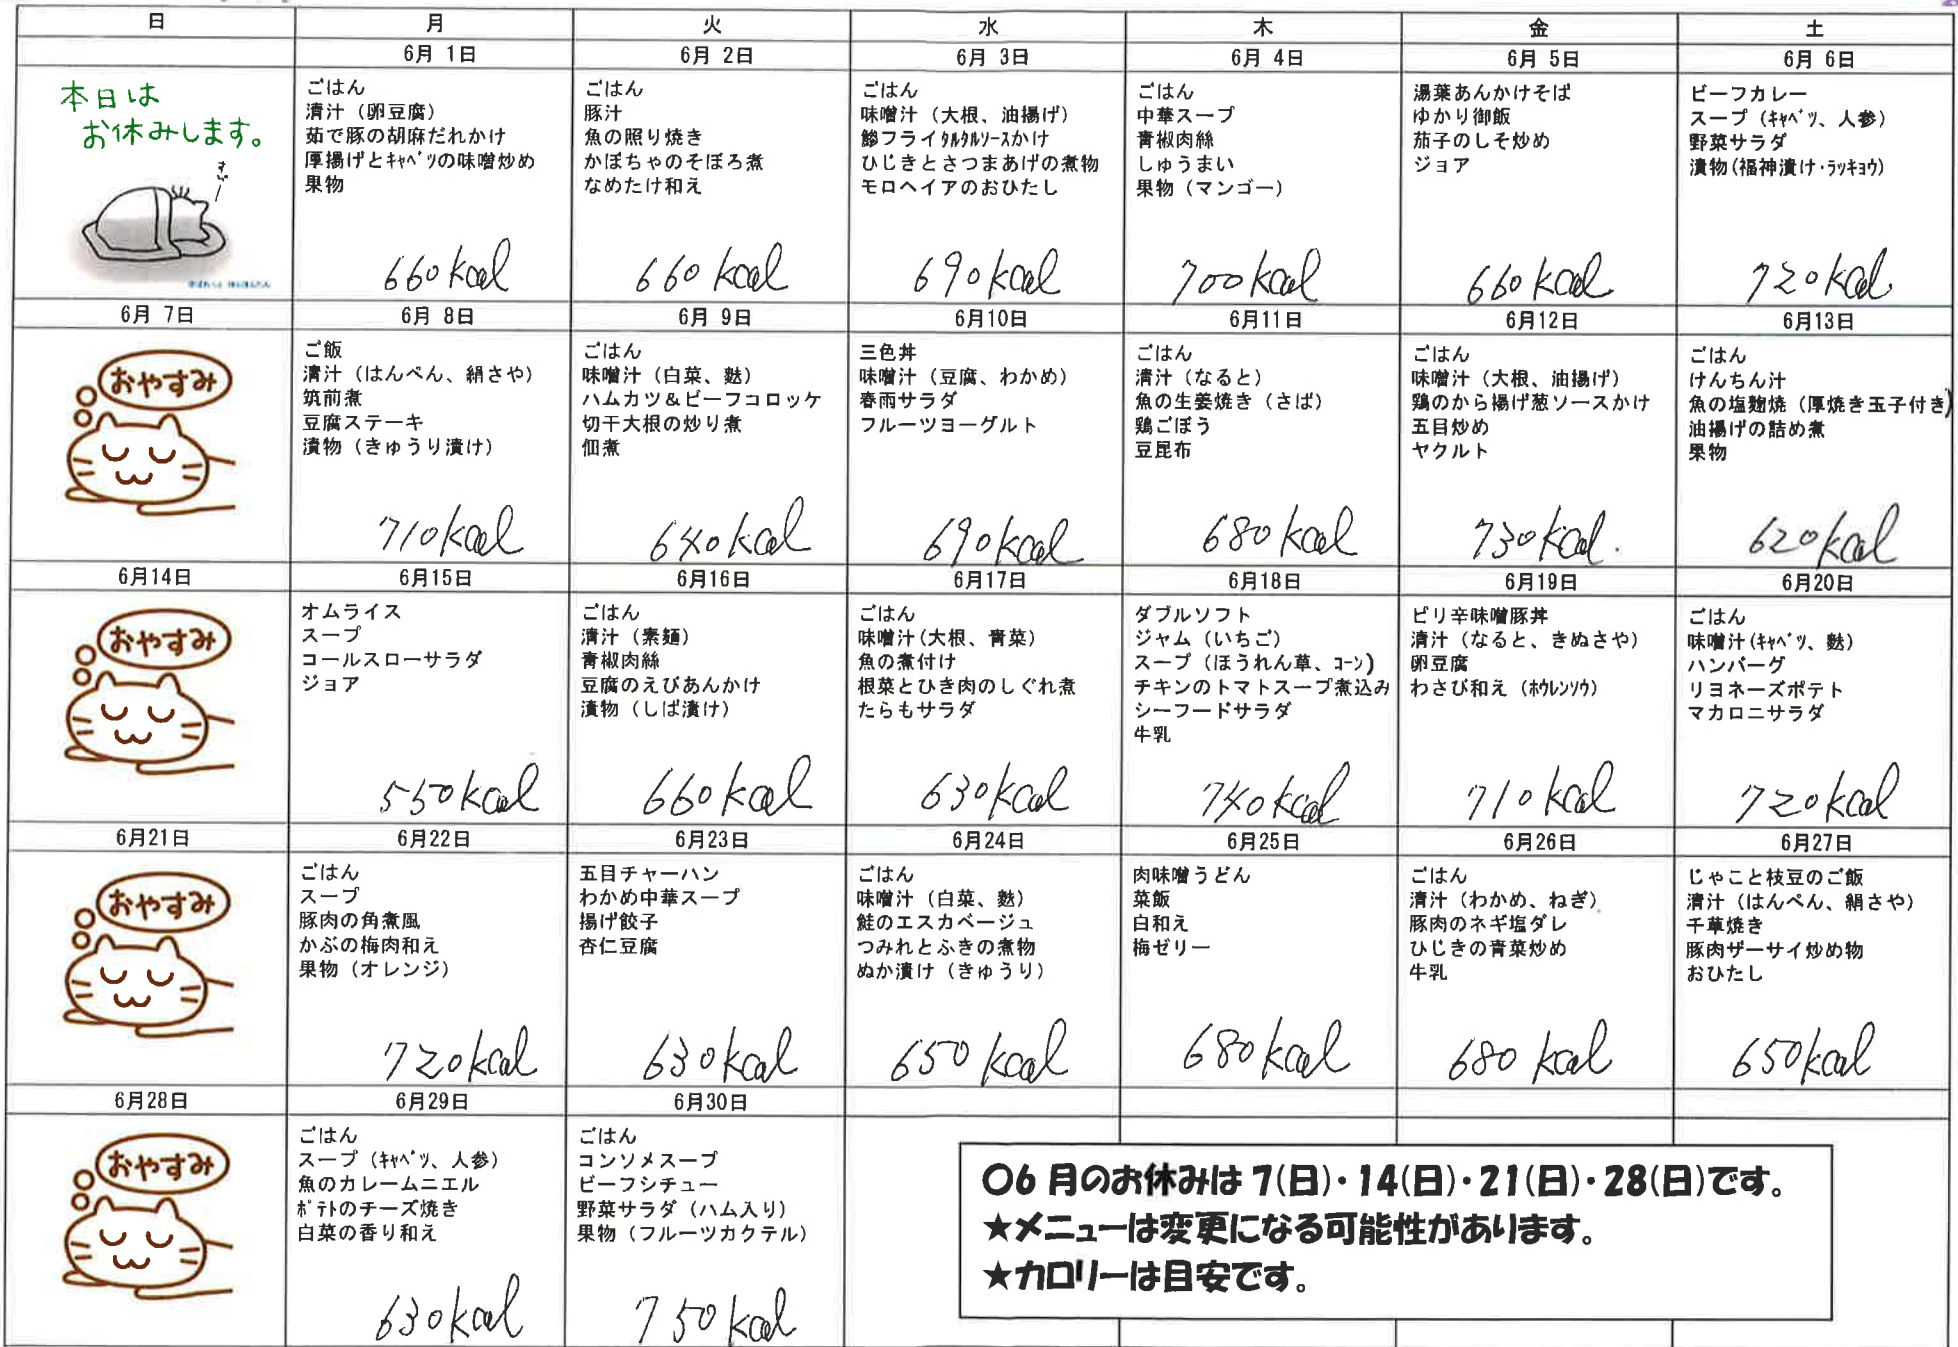 日 月 火 水 木 金 土
6月 1日 6月 2日 6月 3日 6月 4日 6月 5日 6月 6日
本日は
お休みします。
ごはん
清汁（卵豆腐）
茹で豚の胡麻だれかけ
厚揚げとｷｬﾍﾞﾂの味噌炒め
果物
660kcal
ごはん
豚汁
魚の照り焼き
かぼちゃのそぼろ煮
なめたけ和え
660kcal
ごはん
味噌汁（大根、油揚げ）
鯵フライﾀﾙﾀﾙｿｰｽかけ
ひじきとさつまあげの煮物
モロヘイアのおひたし
690kcal
ごはん
中華スープ
青椒肉絲
しゅうまい
果物（マンゴー）
700kcal
湯葉あんかけそば
ゆかり御飯
茄子のしそ炒め
ジョア
660kcal
ビーフカレー
スープ（ｷｬﾍﾞﾂ、人参）
野菜サラダ
漬物(福神漬け・ﾗｯｷｮｳ)
720kcal
6月 7日 6月 8日 6月 9日 6月10日 6月11日 6月12日 6月13日
おやすみ
ご飯
清汁（はんぺん、絹さや）
筑前煮
豆腐ステーキ
漬物（きゅうり漬け）
710kcal
ごはん
味噌汁（白菜、麩）
ハムカツ＆ビーフコロッケ
切干大根の炒り煮
佃煮
640kcal
三色丼
味噌汁（豆腐、わかめ）
春雨サラダ
フルーツヨーグルト
690kcal
ごはん
清汁（なると）
魚の生姜焼き（さば）
鶏ごぼう
豆昆布
680kcal
ごはん
味噌汁（大根、油揚げ）
鶏のから揚げ葱ソースかけ
五目炒め
ヤクルト
730kcal.
ごはん
けんちん汁
魚の塩麹焼（厚焼き玉子付き）
油揚げの詰め煮
果物
620kcal
6月14日 6月15日 6月16日 6月17日 6月18日 6月19日 6月20日
おやすみ
オムライス
スープ
コールスローサラダ
ジョア
550kcal
ごはん
清汁（素麺）
青椒肉絲
豆腐のえびあんかけ
漬物（しば漬け）
660kcal
ごはん
味噌汁(大根、青菜)
魚の煮付け
根菜とひき肉のしぐれ煮
たらもサラダ
630kcal
ダブルソフト
ジャム（いちご）
スープ（ほうれん草、ｺｰﾝ）
チキンのトマトスープ煮込み
シーフードサラダ
牛乳
740kcal
ピリ辛味噌豚丼
清汁（なると、きぬさや）
卵豆腐
わさび和え（ﾎｳﾚﾝｿｳ）
710kcal
ごはん
味噌汁(ｷｬﾍﾞﾂ、麩)
ハンバーグ
リヨネーズポテト
マカロニサラダ
720kcal
6月21日 6月22日 6月23日 6月24日 6月25日 6月26日 6月27日
おやすみ
ごはん
スープ
豚肉の角煮風
かぶの梅肉和え
果物（オレンジ）
720kcal
五目チャーハン
わかめ中華スープ
揚げ餃子
杏仁豆腐
630kcal
ごはん
味噌汁（白菜、麩）
鮭のエスカベージュ
つみれとふきの煮物
ぬか漬け（きゅうり）
650kcal
肉味噌うどん
菜飯
白和え
梅ゼリー
680kcal
ごはん
清汁（わかめ、ねぎ）
豚肉のネギ塩ダレ
ひじきの青菜炒め
牛乳
680kcal
じゃこと枝豆のご飯
清汁（はんぺん、絹さや）
千草焼き
豚肉ザーサイ炒め物
おひたし
650kcal
6月28日 6月29日 6月30日
おやすみ
ごはん
スープ（ｷｬﾍﾞﾂ、人参）
魚のカレームニエル
ﾎﾟﾃﾄのチーズ焼き
白菜の香り和え
630kcal
ごはん
コンソメスープ
ビーフシチュー
野菜サラダ（ハム入り）
果物（フルーツカクテル）
750kcal
〇6月のお休みは7(日)・14(日)・21(日)・28(日)です。
★メニューは変更になる可能性があります。
★カロリーは目安です。